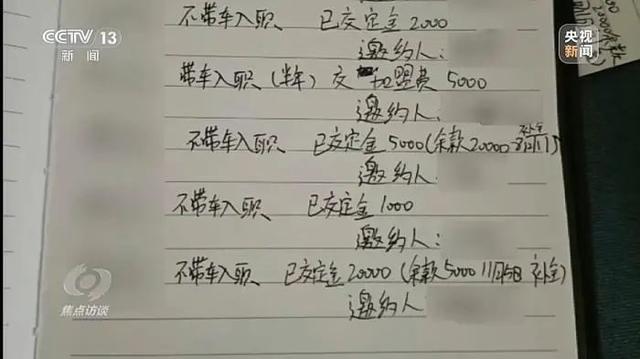 CCTV 13
新闻
央视
新闻
不带车入职、 已交定金 2000
邀约人:
带车入职(半年) 交 加盟费 5000
邀约人:
不带车入职、 已交定金5000(余款20000
邀约人
不带车入职、 已交定金1000
邀约人:
不带车入职、 已交定金20000(余款5000 11月5日 补全)
邀约人
焦点访谈